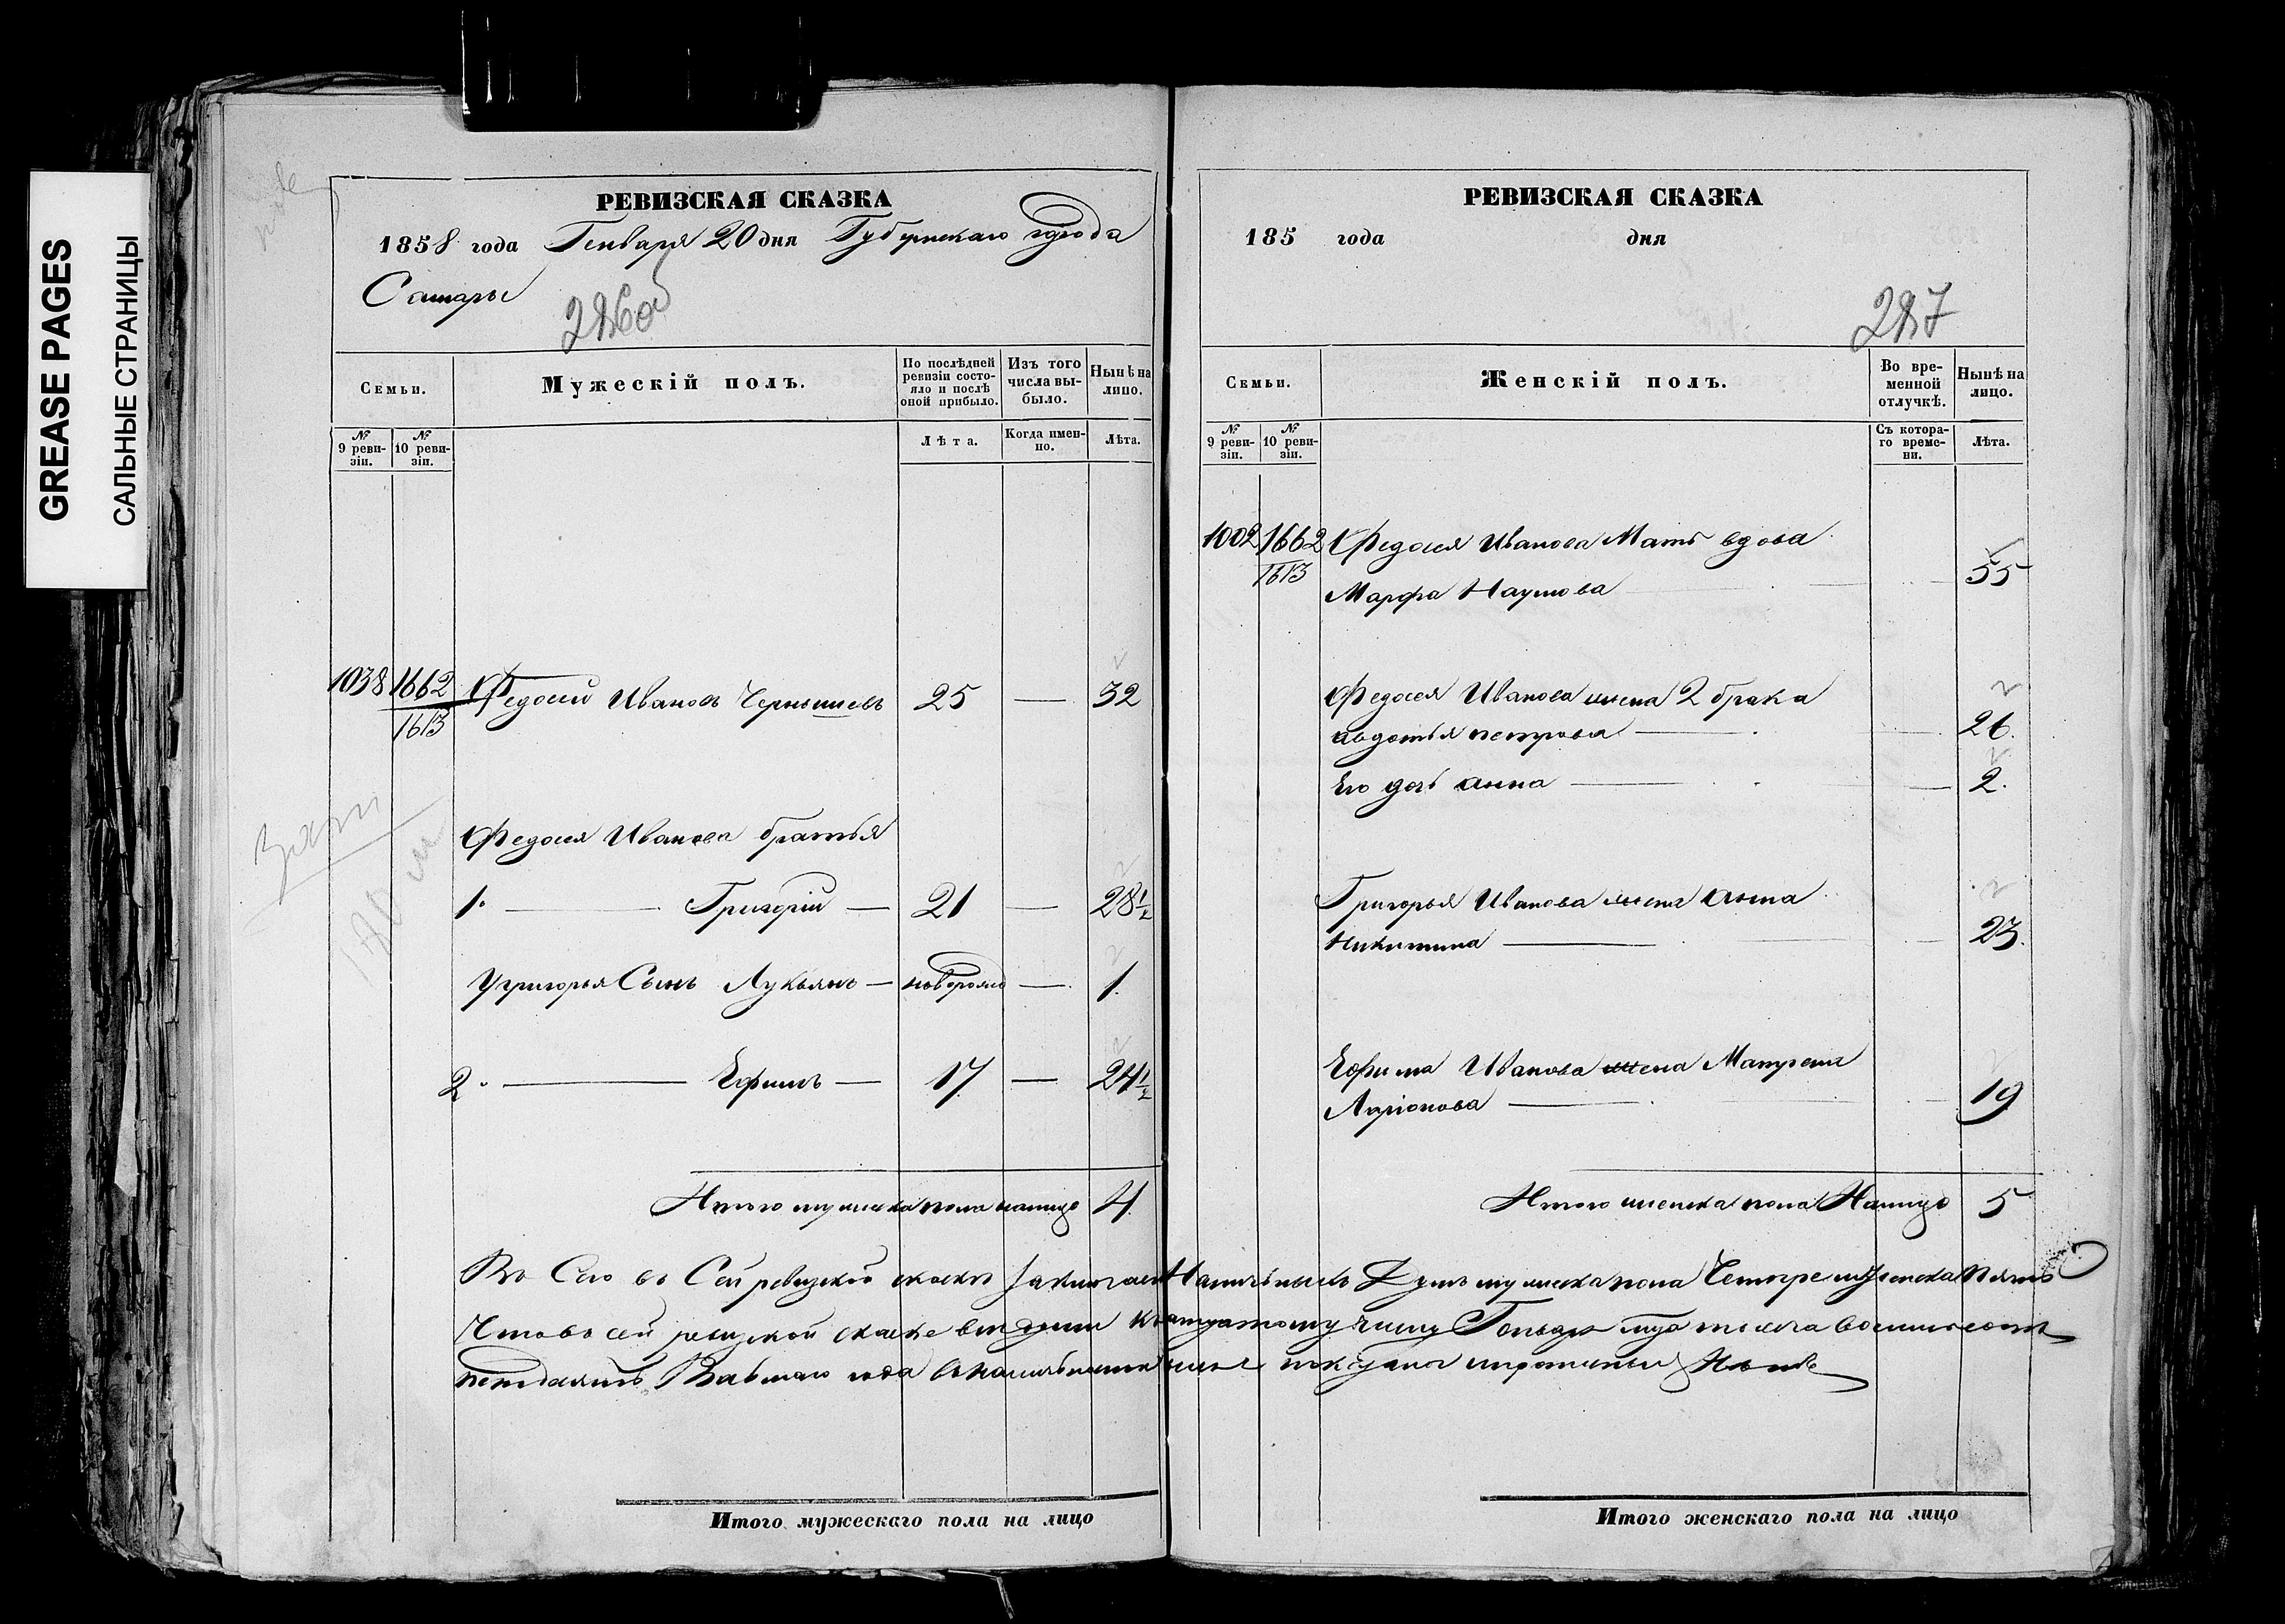 GREASE PAGES
САЛЬНЫЕ СТРАНИЦЫ
РЕВИЗСКАЯ СКАЗКА
1858 года Генваря 20 дня Губернскаго города
Самары
Семьи.
Мужескій полъ.
По послѣдней ревизіи состояло и послѣ оной прибыло.
Изъ того числа выбыло.
Нынѣ на лицо.
№ 9 ревизіи.
№ 10 ревизіи.
Лѣта.
Когда именно.
Лѣта.
1038 1662 Федосей Ивановъ Чернышевъ 25 — 32
1613
Федосея Иванова братья
1. — Григорій — 21 — 28 1/2
У григорья Сынъ Лукьянъ — новорожд — 1.
2. — Ефимъ — 17 — 24 1/2
Итого мужеска пола налицо 4.
РЕВИЗСКАЯ СКАЗКА
185 года дня
287
Семьи.
Женскій полъ.
Во временной отлучкѣ.
Нынѣ на лицо.
№ 9 ревизіи.
№ 10 ревизіи.
Съ котораго времени.
Лѣта.
1002 1662 Федосея Иванова Мать вдова
1613
Марфа Наумова 55
Федосея Иванова жена 2 брака
авдотья петрова — 26.
Его дочь анна — 2.
Григорья Иванова жена Анна
Никитина — 23.
Ефима Иванова жена Матрена
Ларіонова — 19
Итого женска пола Налицо 5
Въ Сей ревизской скаске Наличныхъ Душъ мужеска пола Четыре женска пять
Что въ сей ревизской скаске
года
Итого мужескаго пола на лицо
Итого женскаго пола на лицо